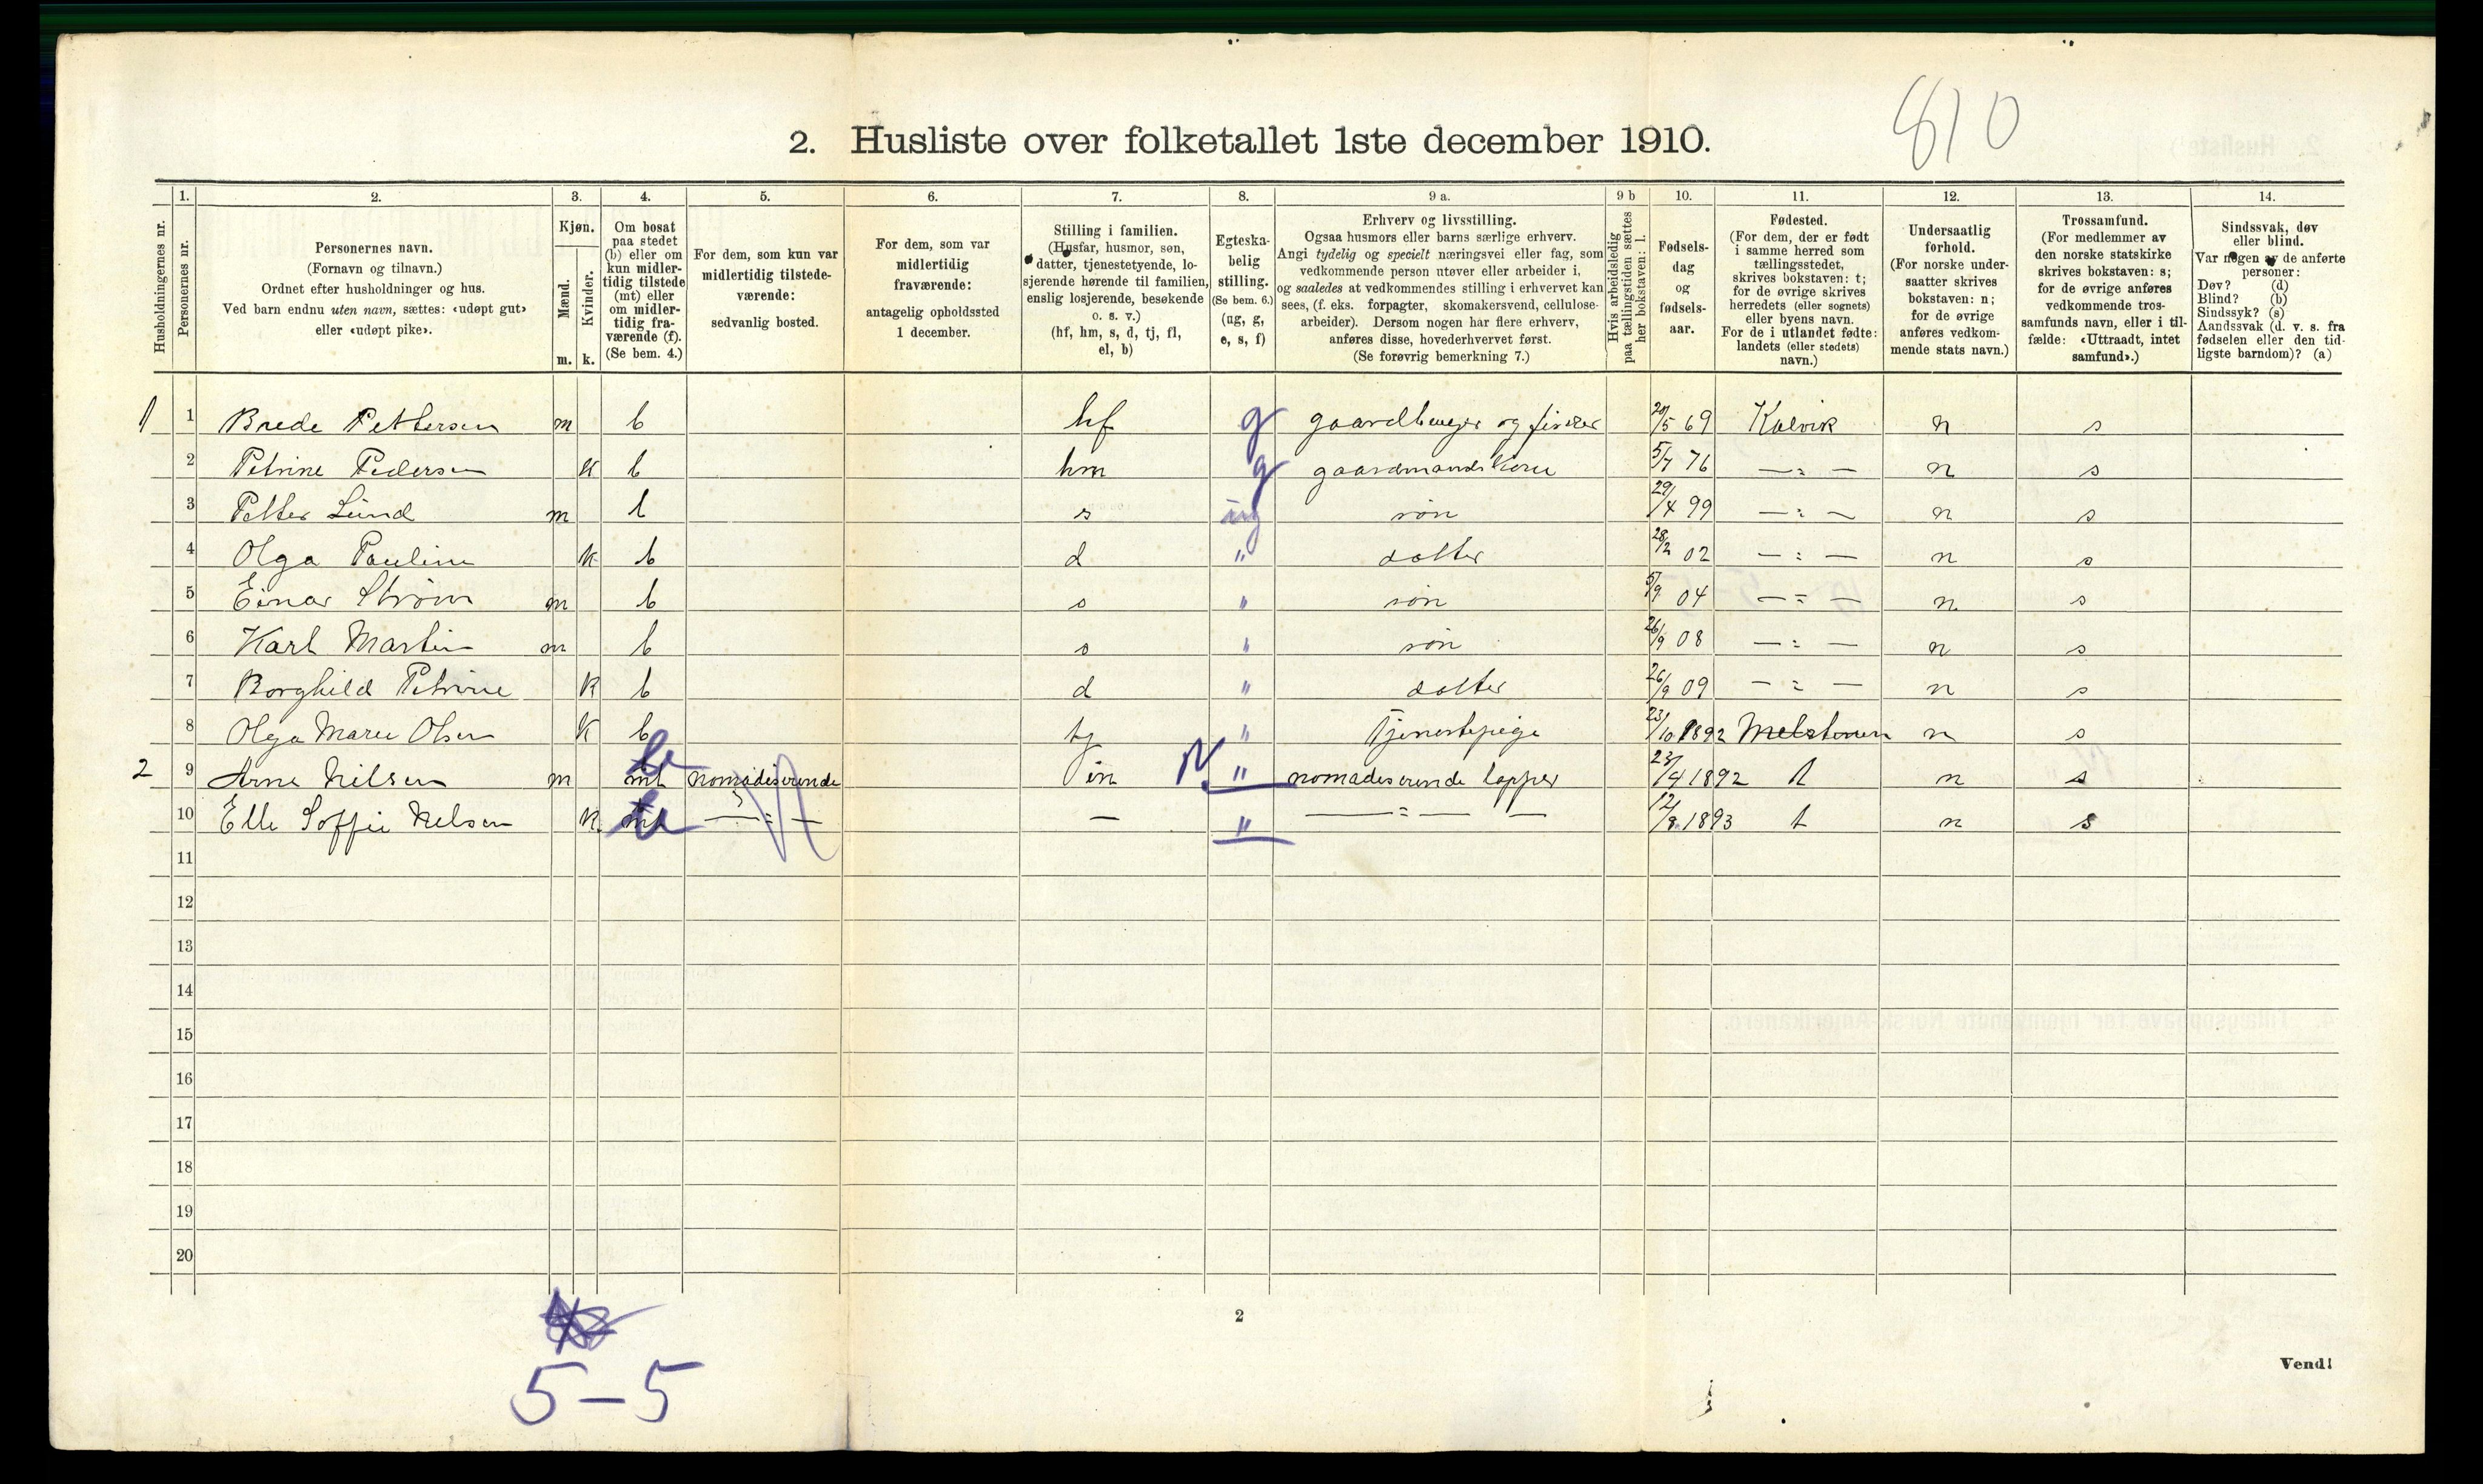 810
2. Husliste over folketallet 1ste december 1910.
Husholdningernes nr.
1.
Personernes nr.
2.
Personernes navn.
(Fornavn og tilnavn.)
Ordnet efter husholdninger og hus.
Ved barn endnu uten navn, sættes: «udøpt gut»
eller «udøpt pike».
3.
Kjøn.
Mænd.
Kvinder.
m. k.
4.
Om bosat
paa stedet
(b) eller om
kun midler-
tidig tilstede
(mt) eller
om midler-
tidig fra-
værende (f).
(Se bem. 4.)
5.
For dem, som kun var
midlertidig tilstede-
værende:
sedvanlig bosted.
6.
For dem, som var
midlertidig
fraværende:
antagelig opholdssted
1 december.
7.
Stilling i familien.
(Husfar, husmor, søn,
datter, tjenestetyende, lo-
sjerende hørende til familien,
enslig losjerende, besøkende
o. s. v.)
(hf, hm, s, d, tj, fl,
el, b)
8.
Egteska-
belig
stilling.
(Se bem. 6.)
(ug, g,
e, s, f)
9 a.
Erhverv og livsstilling.
Ogsaa husmors eller barns særlige erhverv.
Angi tydelig og specielt næringsvei eller fag, som
vedkommende person utøver eller arbeider i,
og saaledes at vedkommendes stilling i erhvervet kan
sees, (f. eks. forpagter, skomakersvend, cellulose-
arbeider). Dersom nogen har flere erhverv,
anføres disse, hovederhvervet først.
(Se forøvrig bemerkning 7.)
9 b
Hvis arbeidsledig
paa tællingstiden sættes
her bokstaven: l.
10.
Fødsels-
dag
og
fødsels-
aar.
11.
Fødested.
(For dem, der er født
i samme herred som
tællingsstedet,
skrives bokstaven: t;
for de øvrige skrives
herredets (eller sognets)
eller byens navn.
For de i utlandet fødte:
landets (eller stedets)
navn.)
12.
Undersaatlig
forhold.
(For norske under-
saatter skrives
bokstaven: n;
for de øvrige
anføres vedkom-
mende stats navn.)
13.
Trossamfund.
(For medlemmer av
den norske statskirke
skrives bokstaven: s;
for de øvrige anføres
vedkommende tros-
samfunds navn, eller i til-
fælde: «Uttraadt, intet
samfund».)
14.
Sindssvak, døv
eller blind.
Var nogen av de anførte
personer:
Døv? (d)
Blind? (b)
Sindssyk? (s)
Aandssvak (d. v. s. fra
fødselen eller den tid-
ligste barndom)? (a)
1 1 Brede Pettersen m b hf g gaardbruger og fisker 20/5 69 Kolvik n s
2 Petrine Pedersen K b hm g gaardmandskone 5/7 76 —〃— n s
3 Petter Lund m b s ug søn 29/4 99 —〃— n s
4 Olga Pauline K b d 〃 datter 28/2 02 —〃— n s
5 Einar Strøm m b s 〃 søn 5/9 04 —〃— n s
6 Karl Martin m b s 〃 søn 26/9 08 —〃— n s
7 Borghild Petrine K b d 〃 datter 26/9 09 —〃— n s
8 Olga Marie Olsen K b tj 〃 Tjenestepige 23/10 1892 n s
2 9 Arne Nilsen m mt b nomadiserende N 〃 nomadiserende lapper 23/4 1892 t n s
10 Elle Soffie Nilsen K mt b —〃— — 〃 —〃— — 12/8 1893 t n s
11
12
13
14
15
16
17
18
19
20
5–5
2
Vend!